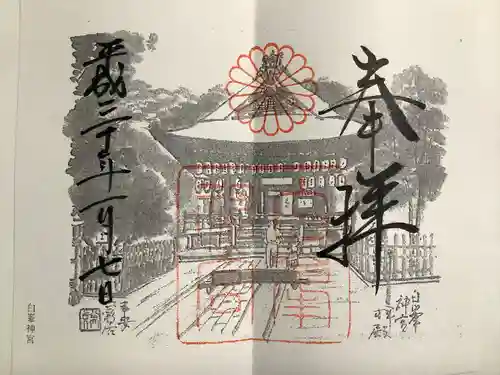 奉拝
平成三十年一月七日
白峯
神宮
拝殿
平安
白峯神宮